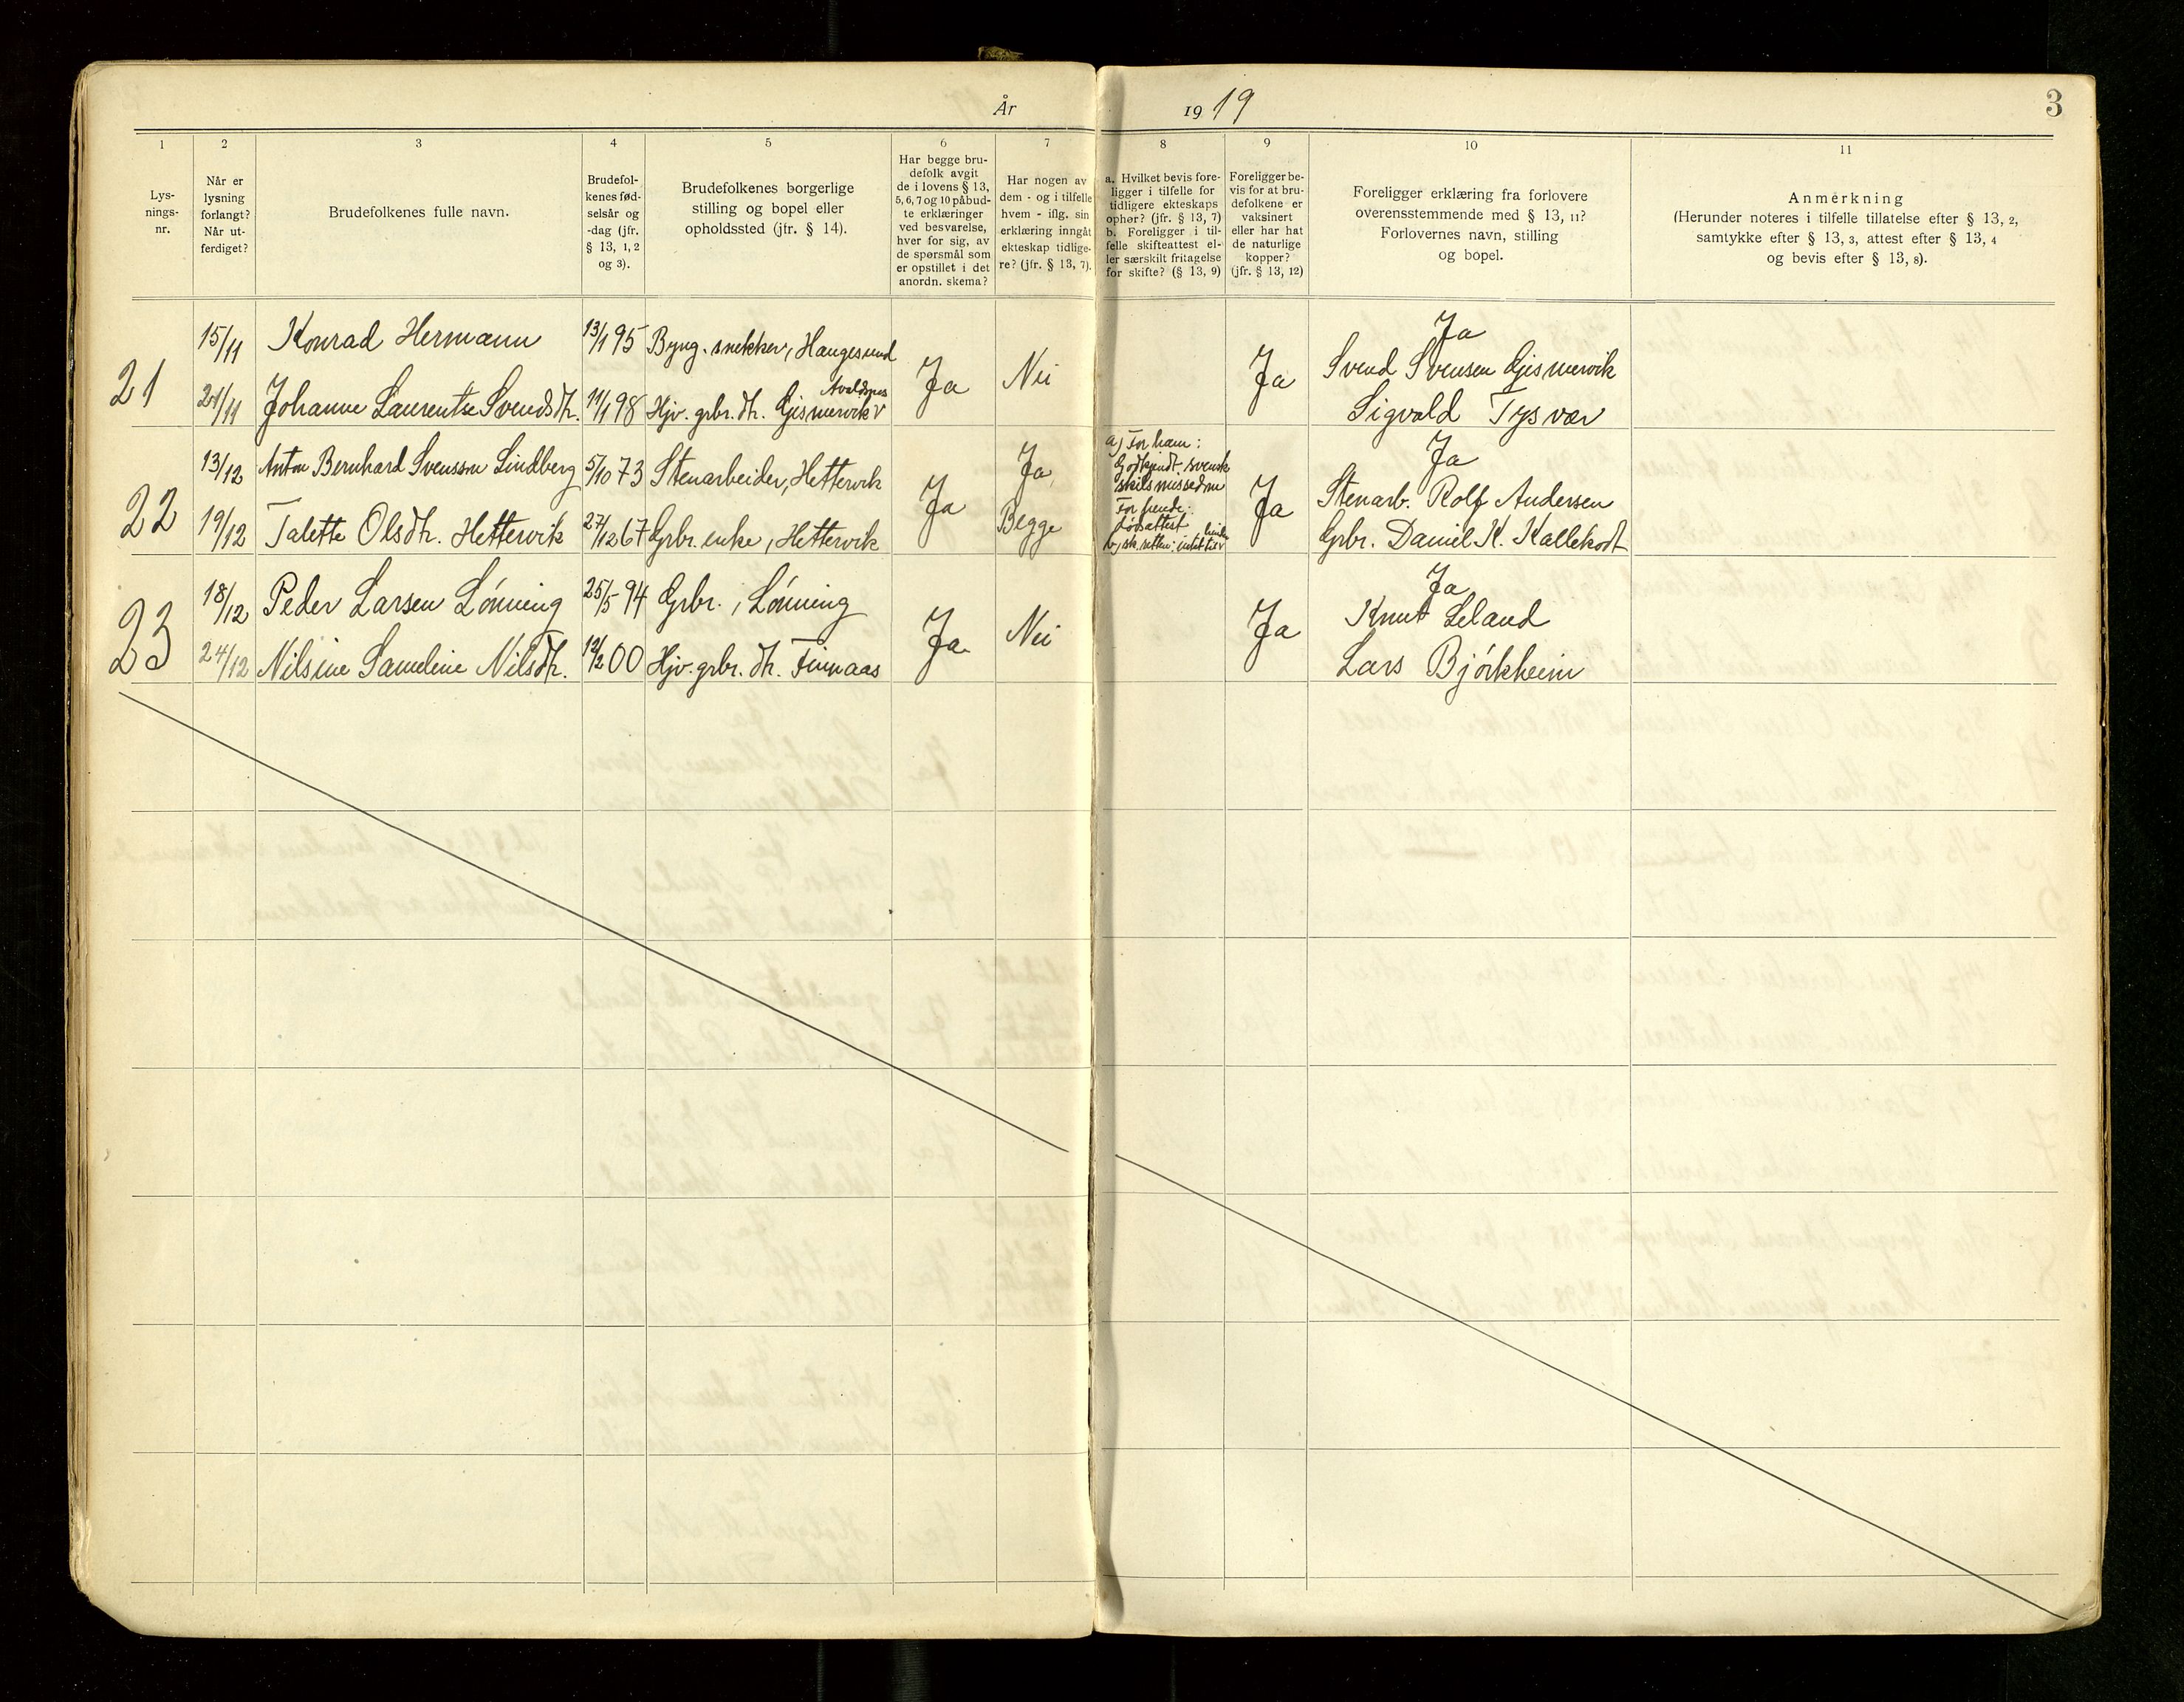 År 1919
3
1 2 3 4 5 6 7 8 9 10 11
Lys-
nings-
nr.
Når er
lysning
forlangt?
Når ut-
ferdiget?
Brudefolkenes fulle navn.
Brudefol-
kenes fød-
selsår og
-dag (jfr.
§ 13, 1, 2
og 3).
Brudefolkenes borgerlige
stilling og bopel eller
opholdssted (jfr. § 14).
Har begge bru-
defolk avgit
de i lovens § 13,
5, 6, 7 og 10 påbud-
te erklæringer
ved besvarelse,
hver for sig, av
de spørsmål som
er opstillet i det
anordn. skema?
Har nogen av
dem - og i tilfelle
hvem - iflg. sin
erklæring inngåt
ekteskap tidlige-
re? (jfr. § 13, 7).
a. Hvilket bevis fore-
ligger i tilfelle for
tidligere ekteskaps
ophør? (jfr. § 13, 7)
b. Foreligger i til-
felle skifteattest el-
ler særskilt fritagelse
for skifte? (§ 13, 9)
Foreligger be-
vis for at bru-
defolkene er
vaksinert
eller har hat
de naturlige
kopper?
(jfr. § 13, 12)
Foreligger erklæring fra forlovere
overensstemmende med § 13, 11?
Forlovernes navn, stilling
og bopel.
Anmerkning
(Herunder noteres i tilfelle tillatelse efter § 13, 2,
samtykke efter § 13, 3, attest efter § 13, 4
og bevis efter § 13, 8).
21
15/11 Konrad Hermann 13/1 95 Bygg. snekker, Haugesund
21/11 Johanne Laurentse Svendsdtr. 11/1 98 Hjv. grbr. dtr. Gismervik Avaldsnes
Ja
Nei
Ja
Ja
Svend Svensen Gismervik
Sigvald Tysvær
22
13/12 Anton Bernhard Svensson Lindberg 5/10 73 Stenarbeider, Hettervik
19/12 Talette Olsdtr. Hettervik 27/12 67 Grbr. enke, Hettervik
Ja
Ja,
Begge
a) For ham:
Godkjendt svensk
skilsmissedom
For hende:
dødsattest
Ja
Ja
Stenarb. Rolf Andersen
Grbr. Daniel K. Kallekodt
23
18/12 Peder Larsen Lønning 25/5 94 Grbr., Lønning
24/12 Nilsine Sameline Nilsdtr. 12/2 00 Hjv. grbr. dtr. Finnaas
Ja
Nei
Ja
Ja
Knut Leland
Lars Bjørkheim